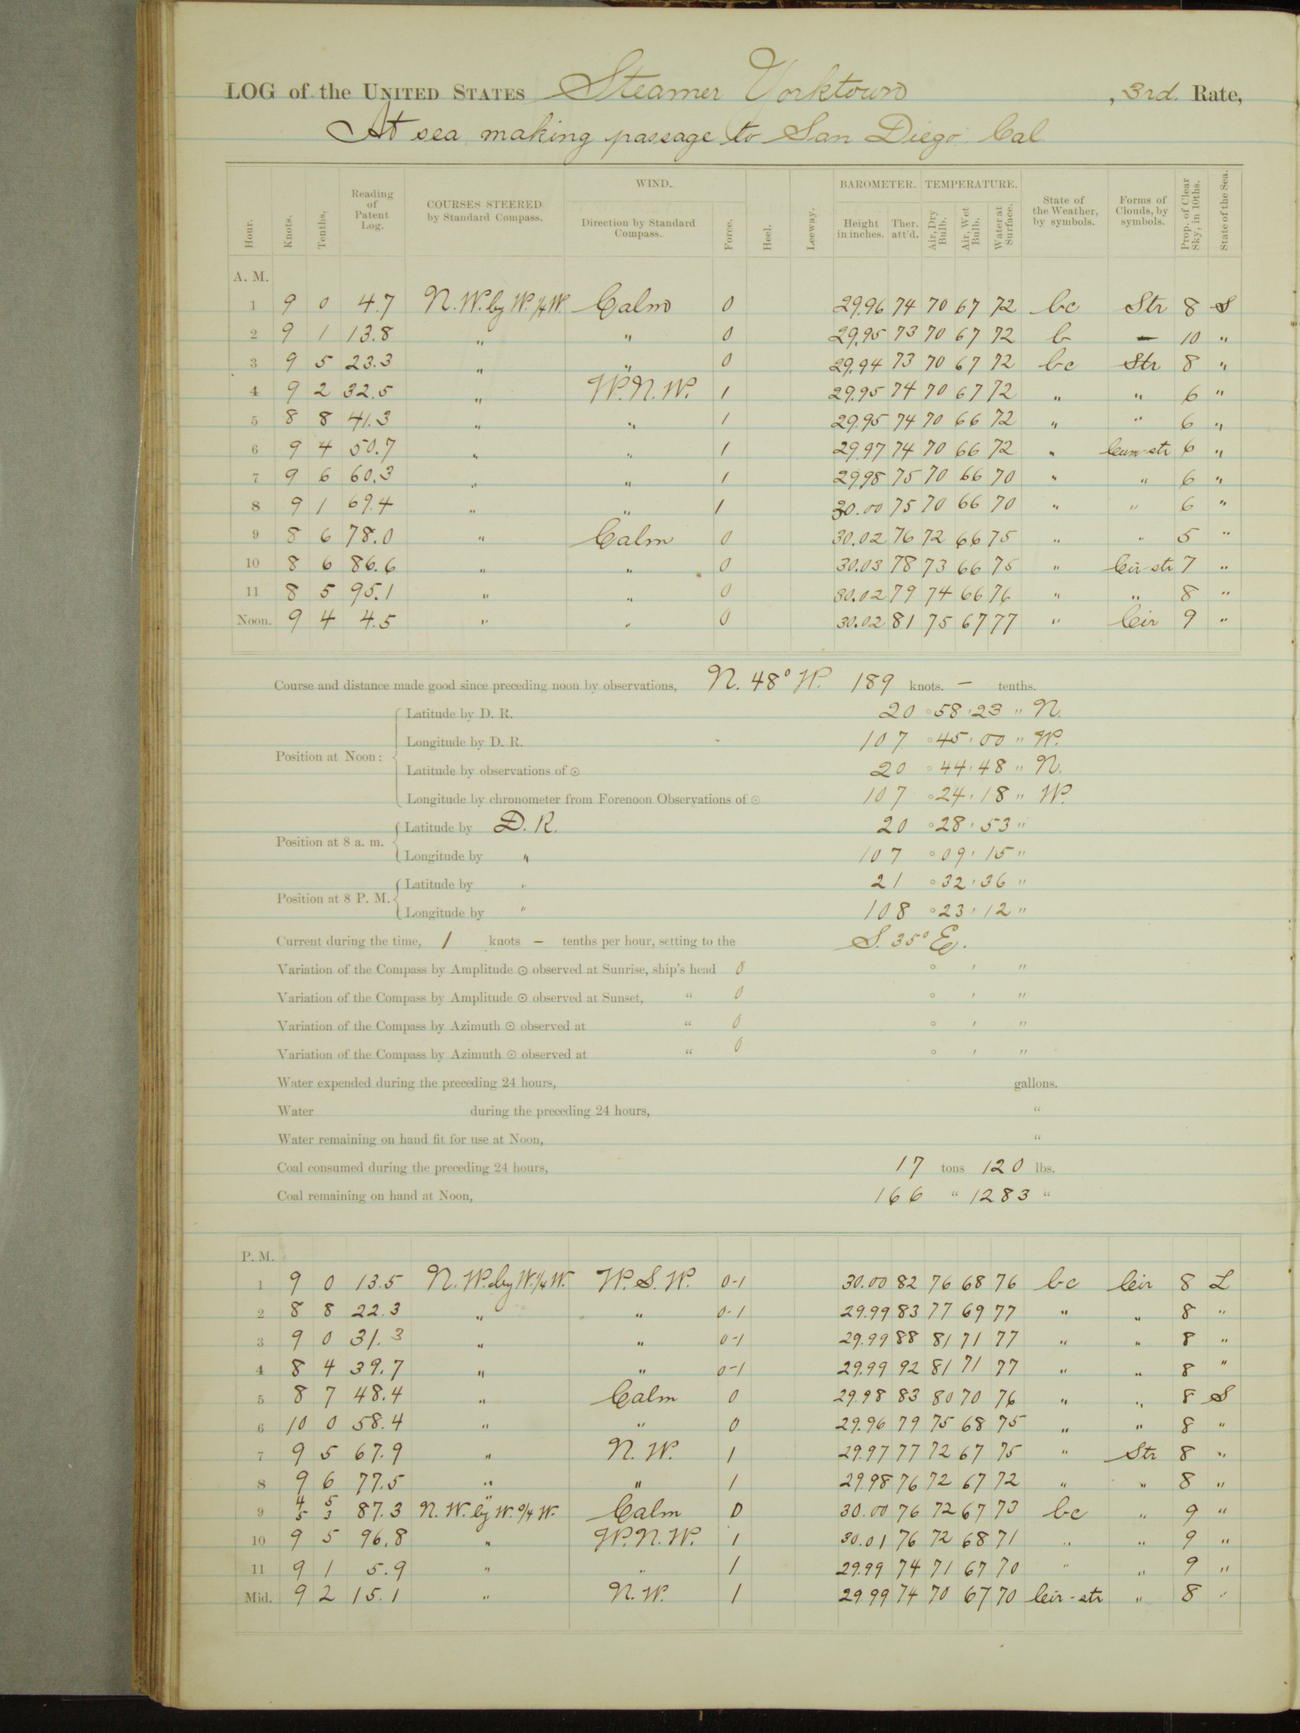 LOG of the UNITED STATES Steamer Yorktown, 3rd. Rate,
At sea making passage to San Diego Cal
Hour. Knots. Tenths. Reading of Patent Log. COURSES STEERED by Standard Compass. WIND. Direction by Standard Compass. Force. Heel. Leeway. BAROMETER. Height in inches. Ther. att'd. TEMPERATURE. Air, Dry Bulb. Air, Wet Bulb. Water at Surface. State of the Weather, by symbols. Forms of Clouds, by symbols. Prop. of Clear Sky, in 10ths. State of the Sea.
A. M.
1 9 0 4.7 N.W. by W. 1/4 W. Calm 0 29.96 74 70 67 72 bc Str 8 S
2 9 1 13.8 " " 0 29.95 73 70 67 72 b — 10 "
3 9 5 23.3 " " 0 29.94 73 70 67 72 bc Str 8 "
4 9 2 32.5 " W.N.W. 1 29.95 74 70 67 72 " " 6 "
5 8 8 41.3 " " 1 29.95 74 70 66 72 " " 6 "
6 9 4 50.7 " " 1 29.97 74 70 66 72 " Cum-str 6 "
7 9 6 60.3 " " 1 29.98 75 70 66 70 " " 6 "
8 9 1 69.4 " " 1 30.00 75 70 66 70 " " 6 "
9 8 6 78.0 " Calm 0 30.02 76 72 66 75 " " 5 "
10 8 6 86.6 " " 0 30.03 78 73 66 75 " Cir-str 7 "
11 8 5 95.1 " " 0 30.02 79 74 66 76 " " 8 "
Noon. 9 4 4.5 " " 0 30.02 81 75 67 77 " Cir 9 "
Course and distance made good since preceding noon by observations, N. 48° W. 189 knots. — tenths.
Position at Noon:
Latitude by D. R. 20 ° 58 ' 23 " N.
Longitude by D. R. 107 ° 45 ' 00 " W.
Latitude by observations of ☉ 20 ° 44 ' 48 " N.
Longitude by chronometer from Forenoon Observations of ☉ 107 ° 24 ' 18 " W.
Position at 8 a. m.
Latitude by D. R. 20 ° 28 ' 53 "
Longitude by " 107 ° 09 ' 15 "
Position at 8 P. M.
Latitude by " 21 ° 32 ' 36 "
Longitude by " 108 ° 23 ' 12 "
Current during the time, 1 knots — tenths per hour, setting to the S. 35° E.
Variation of the Compass by Amplitude ☉ observed at Sunrise, ship's head 0 ° ' "
Variation of the Compass by Amplitude ☉ observed at Sunset, " 0 ° ' "
Variation of the Compass by Azimuth ☉ observed at " 0 ° ' "
Variation of the Compass by Azimuth ☉ observed at " 0 ° ' "
Water expended during the preceding 24 hours, gallons.
Water during the preceding 24 hours, "
Water remaining on hand fit for use at Noon, "
Coal consumed during the preceding 24 hours, 17 tons 120 lbs.
Coal remaining on hand at Noon, 166 " 1283 "
P. M.
1 9 0 13.5 N.W. by W. 1/4 W. W.S.W. 0-1 30.00 82 76 68 76 bc Cir 8 L
2 8 8 22.3 " " 0-1 29.99 83 77 69 77 " " 8 "
3 9 0 31.3 " " 0-1 29.99 88 81 71 77 " " 8 "
4 8 4 39.7 " " 0-1 29.99 92 81 71 77 " " 8 "
5 8 7 48.4 " Calm 0 29.98 83 80 70 76 " " 8 S
6 10 0 58.4 " " 0 29.96 79 75 68 75 " " 8 "
7 9 5 67.9 " N.W. 1 29.97 77 72 67 75 " Str 8 "
8 9 6 77.5 " " 1 29.98 76 72 67 72 " " 8 "
9 4/5 5/3 87.3 " N.W. by W. 0/4 W. Calm 0 30.00 76 72 67 73 bc " 9 "
10 9 5 96.8 " W.N.W. 1 30.01 76 72 68 71 " " 9 "
11 9 1 5.9 " " 1 29.99 74 71 67 70 " " 9 "
Mid. 9 2 15.1 " N.W. 1 29.99 74 70 67 70 Cir-str " 8 "